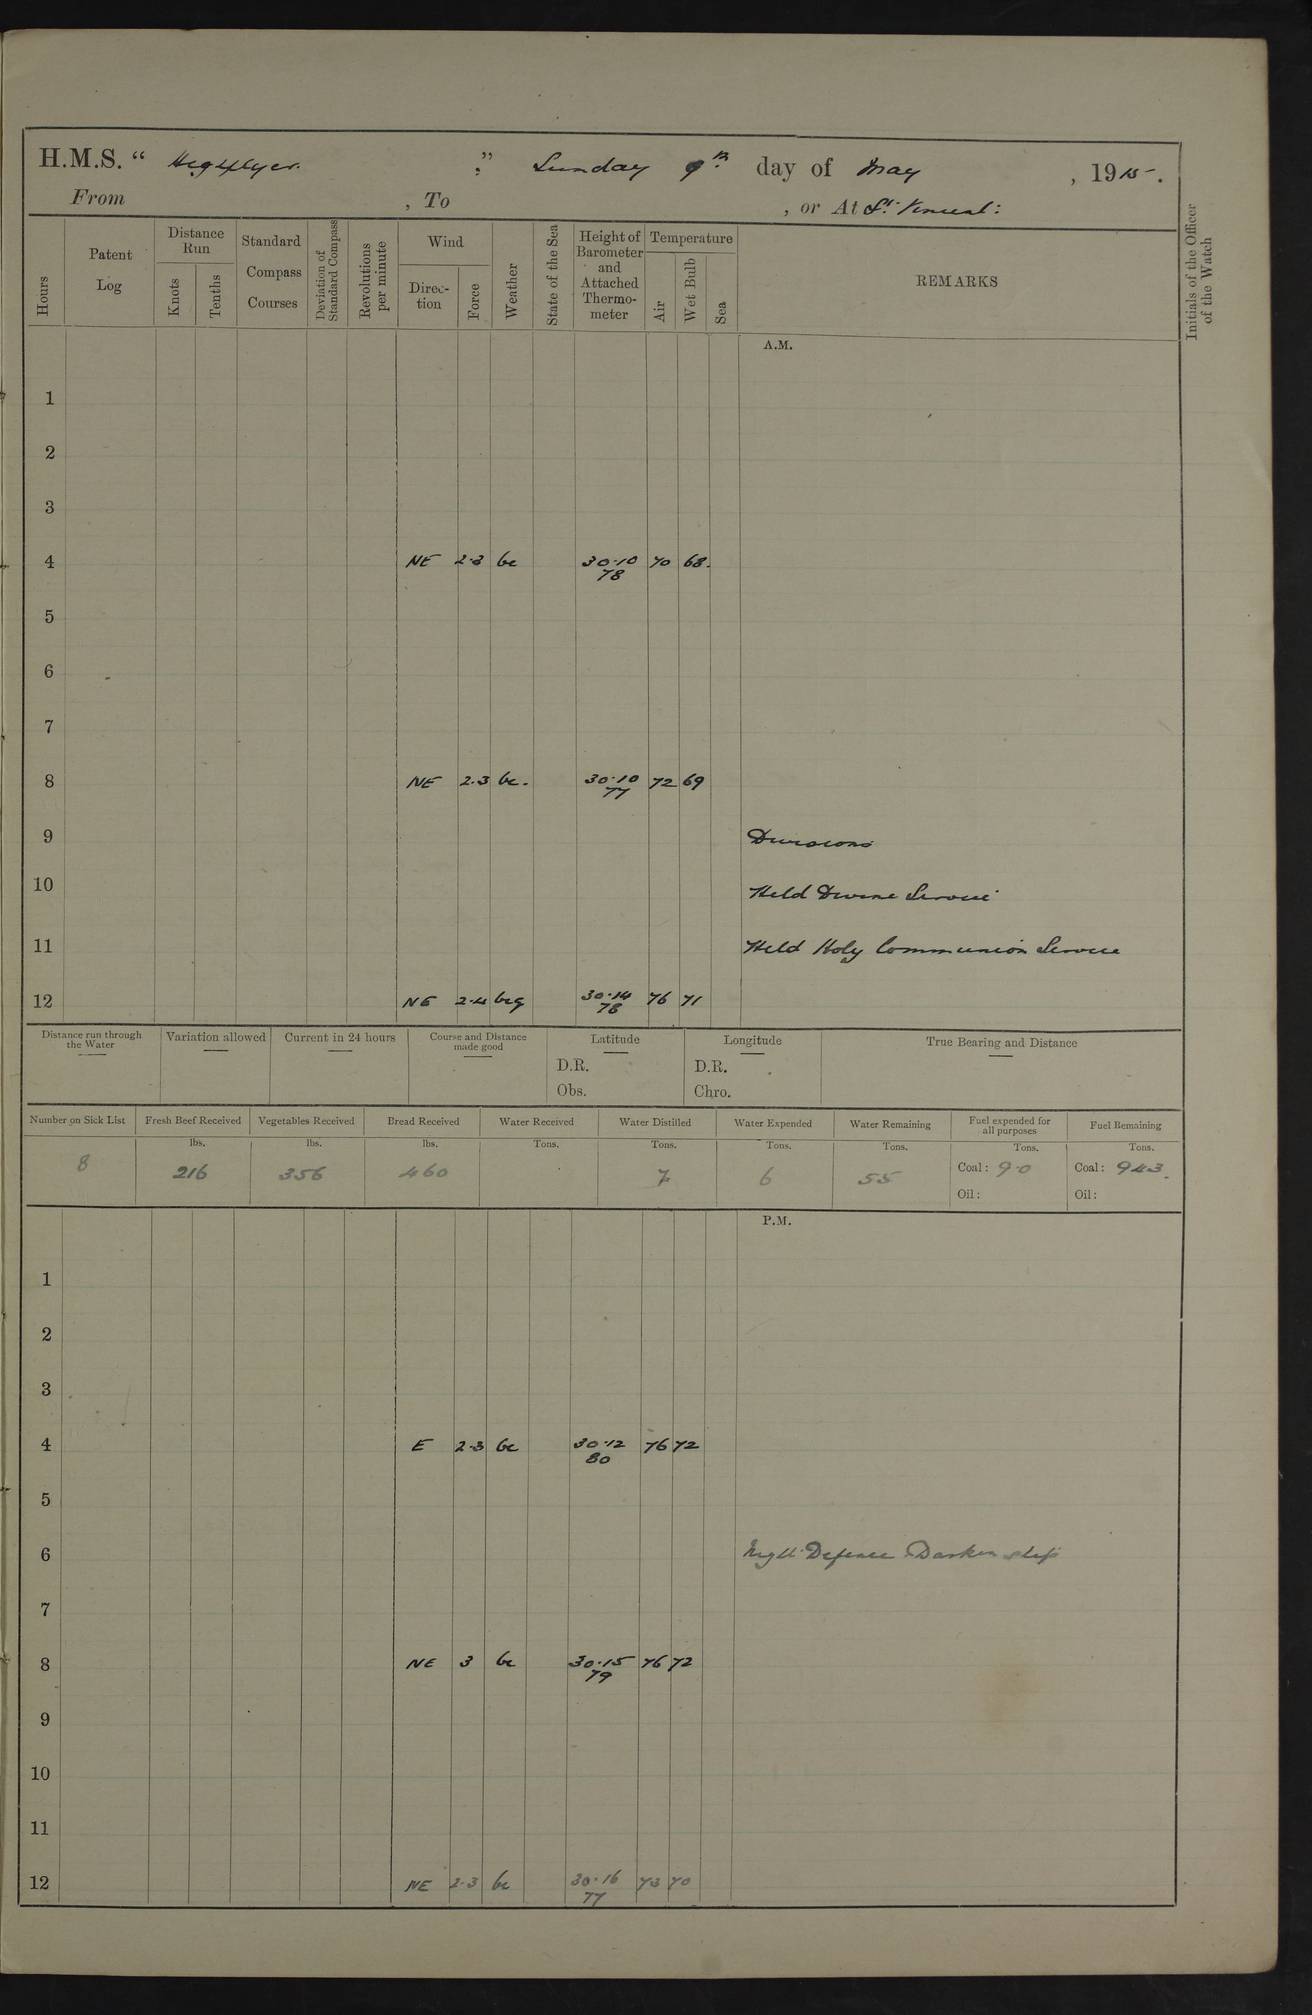 H.M.S. “ Highflyer. ” Sunday 9th day of May , 1915 .
From , To , or At St. Vincent:
Hours Patent Log Distance Run Knots Tenths Standard Compass Courses Deviation of Standard Compass Revolutions per minute Wind Direction Force Weather State of the Sea Height of Barometer and Attached Thermometer Temperature Air Wet Bulb Sea REMARKS Initials of the Officer of the Watch
A.M.
1
2
3
4 NE 2·3 bc 30·10 78 70 68.
5
6
7
8 NE 2·3 bc. 30·10 77 72 69
9 Divisions
10 Held Divine Service
11 Held Holy Communion Service
12 NE 2·4 bcg 30·14 78 76 71
Distance run through the Water Variation allowed Current in 24 hours Course and Distance made good Latitude Longitude True Bearing and Distance
D.R. D.R.
Obs. Chro.
Number on Sick List Fresh Beef Received Vegetables Received Bread Received Water Received Water Distilled Water Expended Water Remaining Fuel expended for all purposes Fuel Remaining
lbs. lbs. lbs. Tons. Tons. Tons. Tons. Tons. Tons.
8 216 356 460 7 6 55 Coal: 9·0 Coal: 943.
Oil: Oil:
P.M.
1
2
3
4 E 2·3 bc 30·12 80 76 72
5
6 Night Defence Darken ship
7
8 NE 3 bc 30·15 79 76 72
9
10
11
12 NE 2·3 bc 30·16 77 73 70